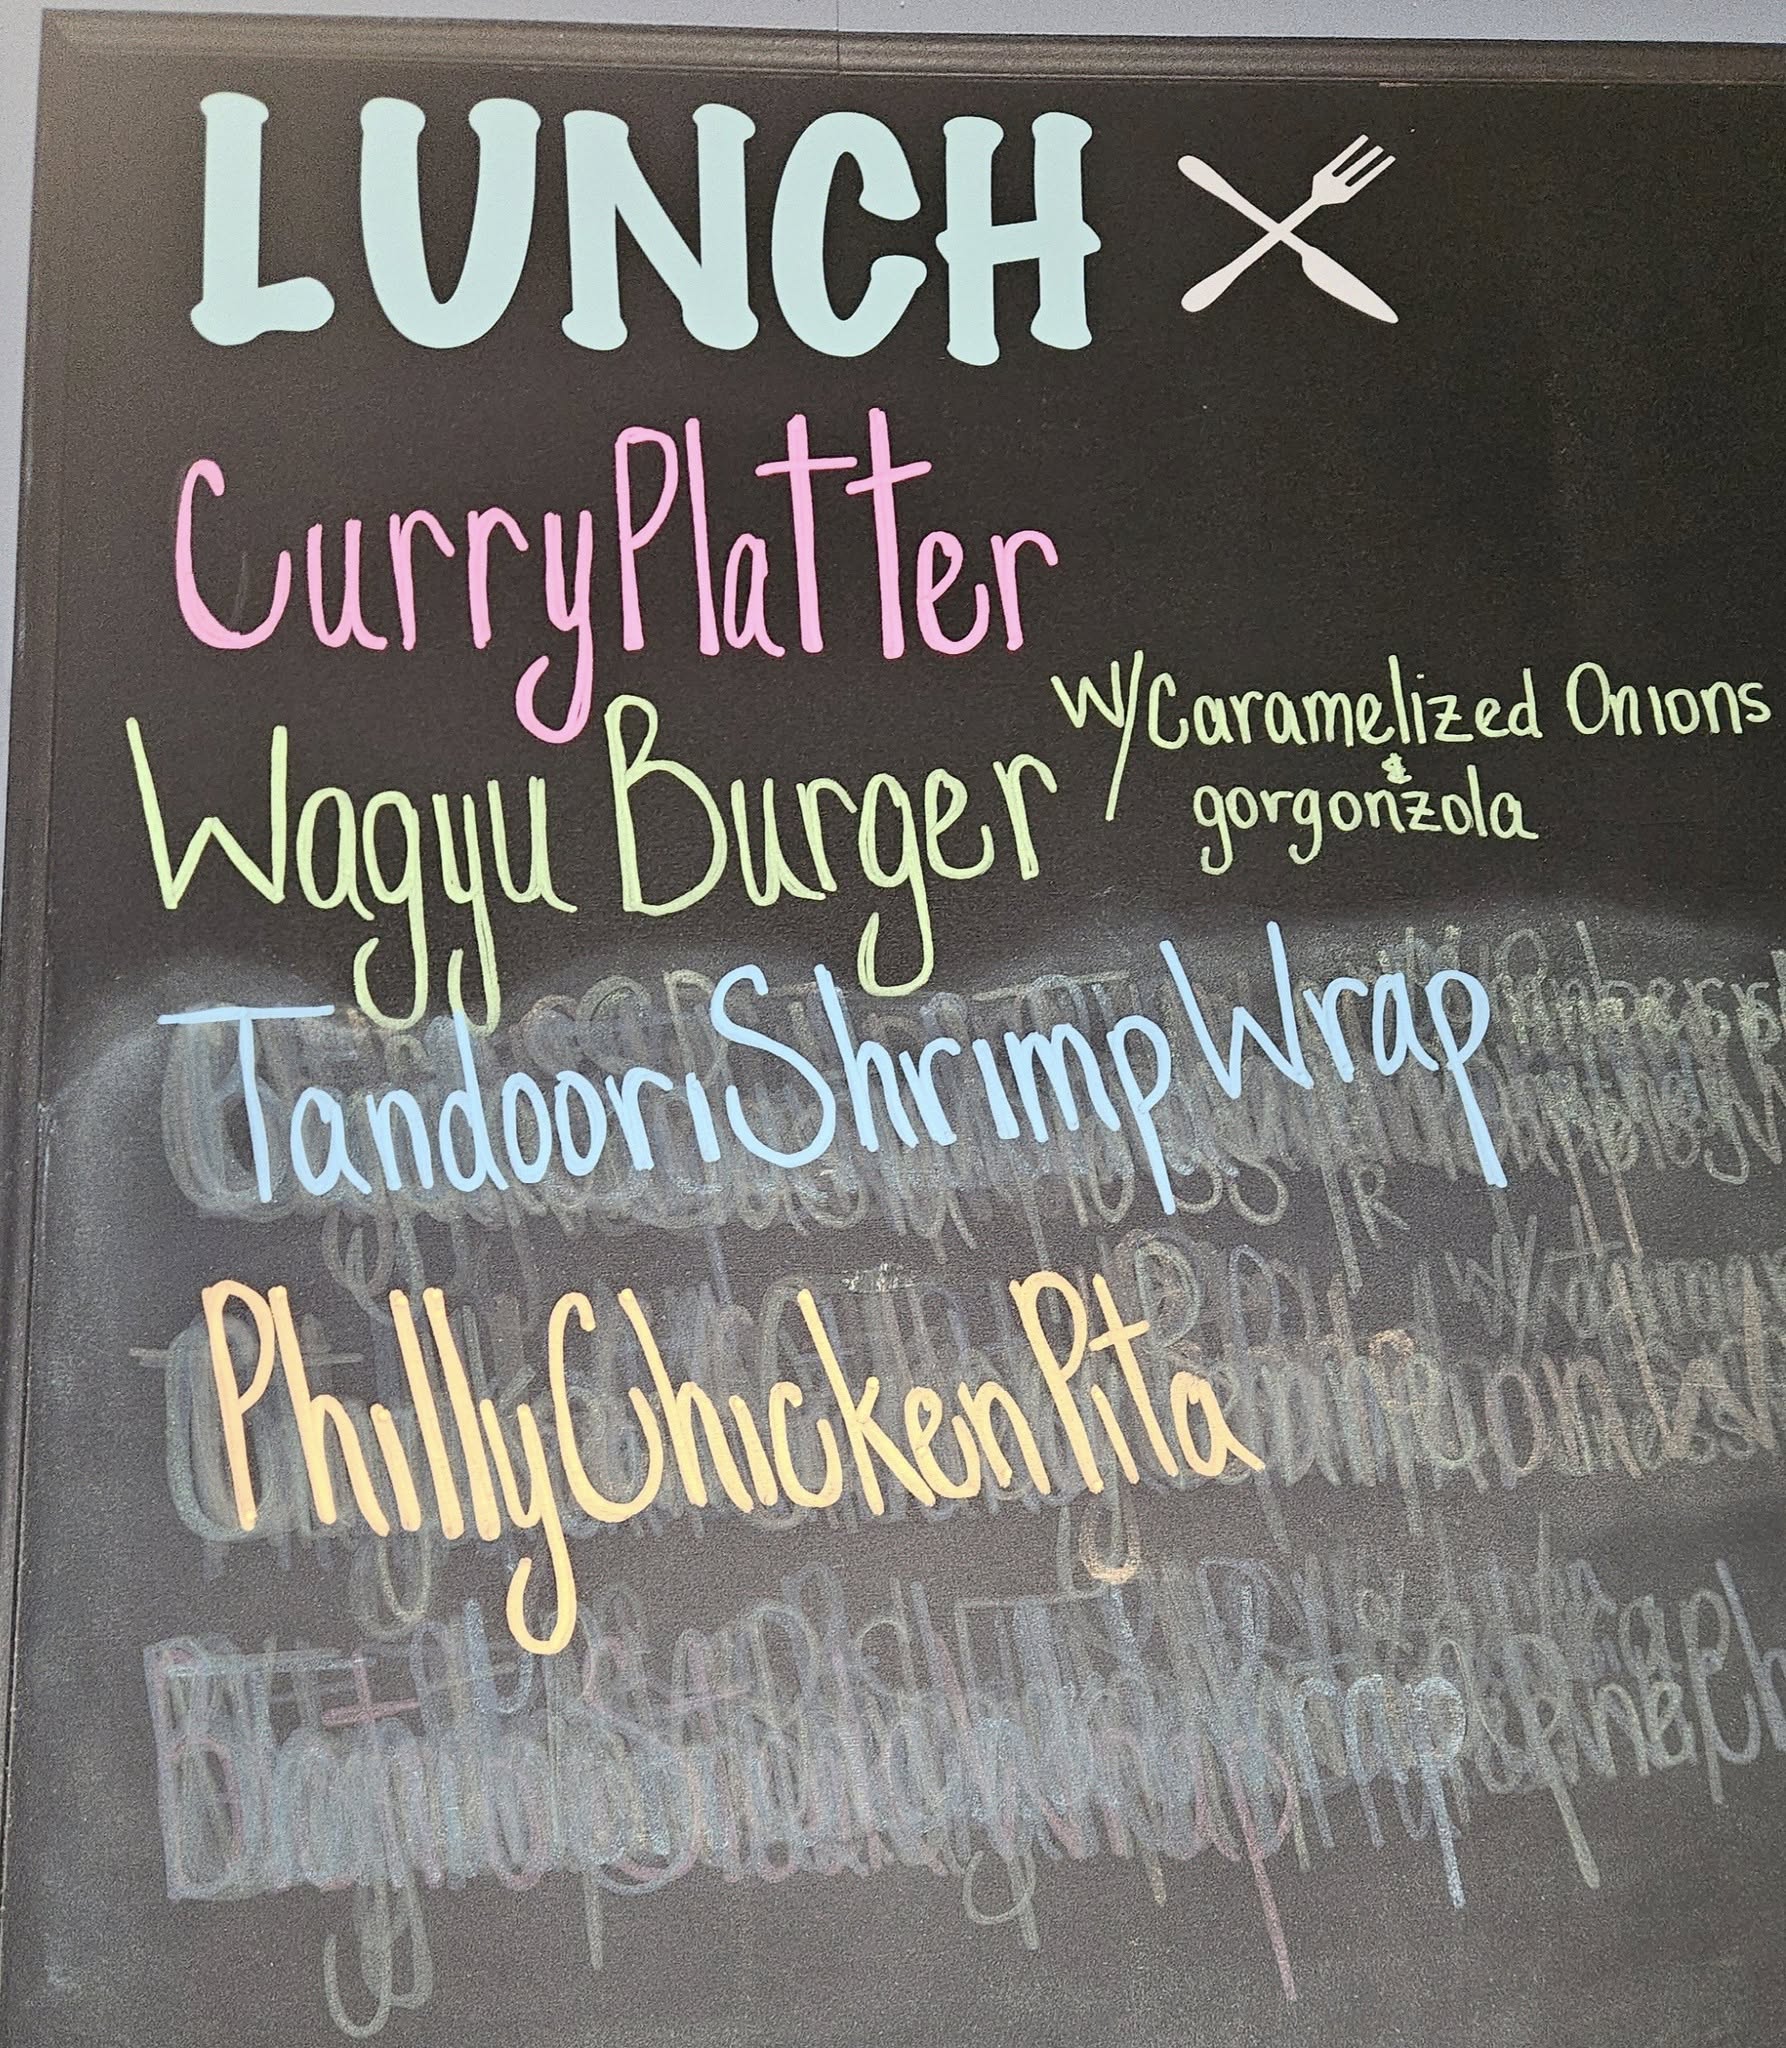 LUNCH
Curry Platter
Wagyu Burger w/Caramelized Onions
& gorgonzola
Tandoori Shrimp Wrap
Philly Chicken Pita